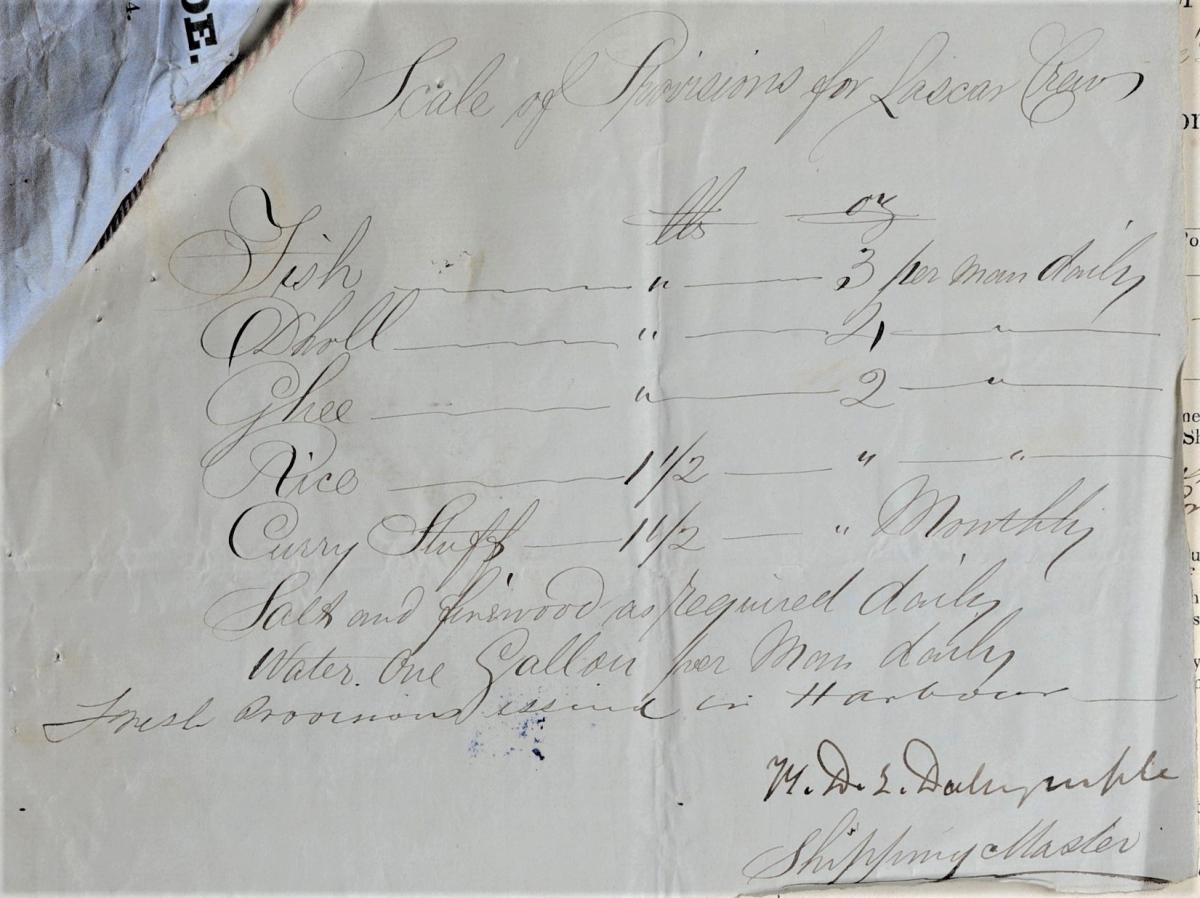 DE.
4.
Scale of Provisions for Lascar Crew
lbs oz
Fish " 3 per man daily
Dholl " 2 "
Ghee " 2 "
Rice 1 1/2 " "
Curry Stuff 1 1/2 " Monthly
Salt and firewood as required daily
Water. One Gallon per Man daily
Fresh Provisions issued in Harbour
Dalrymple
Shipping Master